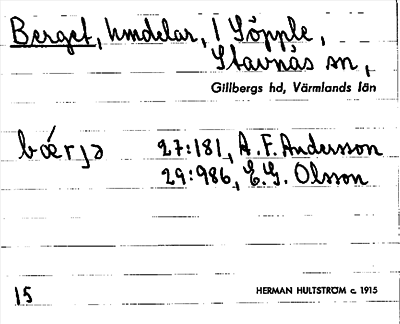 Berget, hmdelar, i Söpple,
Stavnäs sn,
Gillbergs hd, Värmlands län
bǽrjə 27:181, A. F. Andersson
29:986, E. G. Olsson
15 HERMAN HULTSTRÖM c. 1915